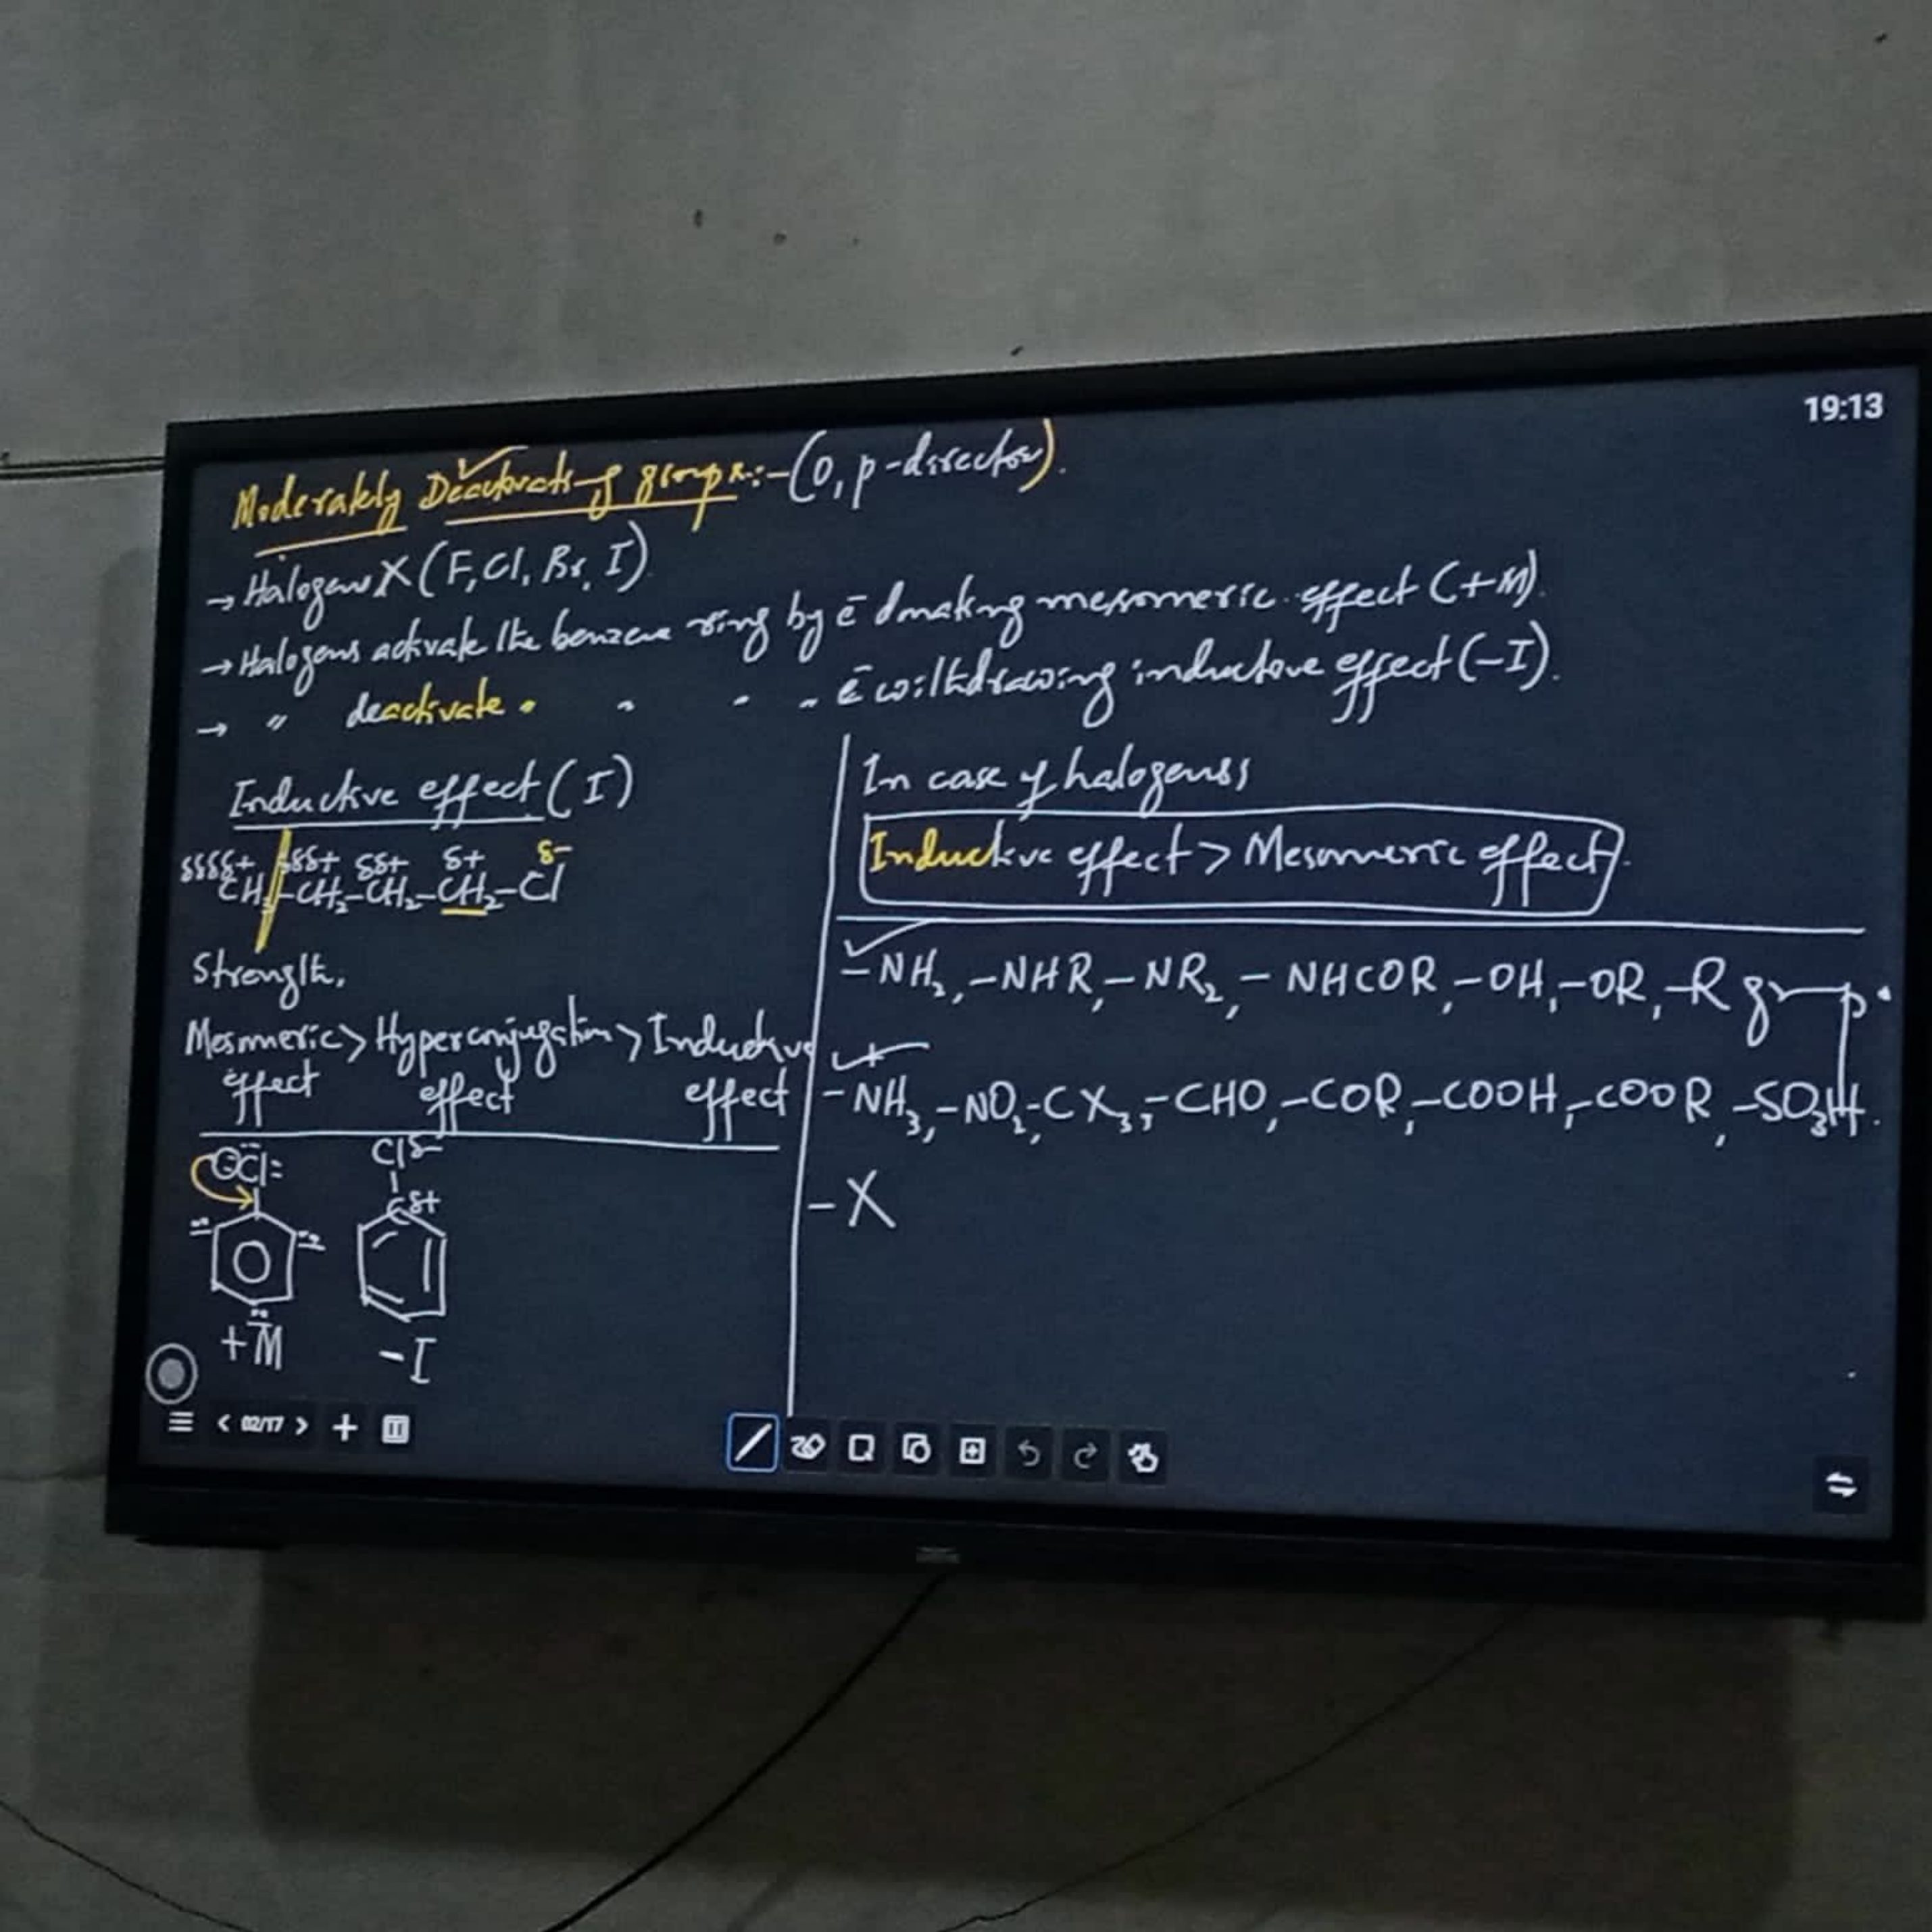 19:13
Moderately Deactivating groups:-(o, p-director).
→ Halogens X (F, Cl, Br, I)
→ Halogens activate the benzene ring by ē donating mesomeric effect (+M).
→ " deactivate " " " " ē withdrawing inductive effect (-I).
Inductive effect (I)
δδδδ+ δδδ+ δδ+ δ+ δ-
CH₃-CH₂-CH₂-CH₂-Cl
Strength,
Mesomeric > Hyperconjugation > Inductive
effect effect effect
Cl: Cl δ-
C δ+
+M -I
In case of halogens,
Inductive effect > Mesomeric effect.
-NH₂, -NHR, -NR₂, -NHCOR, -OH, -OR, -R group.
+
-NH₃, -NO₂, -CX₃, -CHO, -COR, -COOH, -COOR, -SO₃H.
-X
02/17